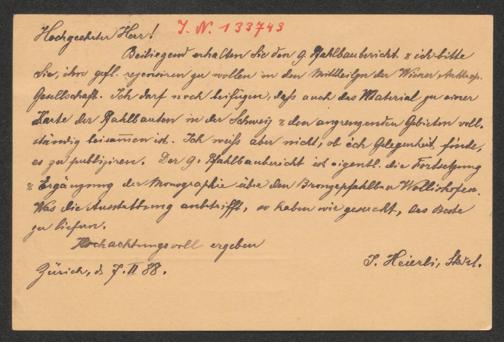 Hochgeehrter Herr! J. N. 133743
Beiliegend erhalten Sie den 9. Pfahlbaubericht & ich bitte
Sie, ihn gefl. rezensiren zu wollen in den Mittheilgn der Wiener Anthrop.
Gesellschaft. Ich darf noch beifügen, dass auch das Material zu einer
Karte der Pfahlbauten in der Schweiz & den angrenzenden Gebieten voll-
ständig beisam̅en ist. Ich weiss aber nicht, ob ich Gelegenheit finde,
es zu publiziren. Der 9. Pfahlbaubericht ist eigentl. die Fortsetzung
& Ergänzung der Monographie über den Bronzepfahlbau Wollishofen.
Was die Ausstattung anbetrifft, so haben wir gesucht, das Beste
zu liefern.
Hochachtungsvoll ergeben
J. Heierli,
Zürich, d. 7. II 88.